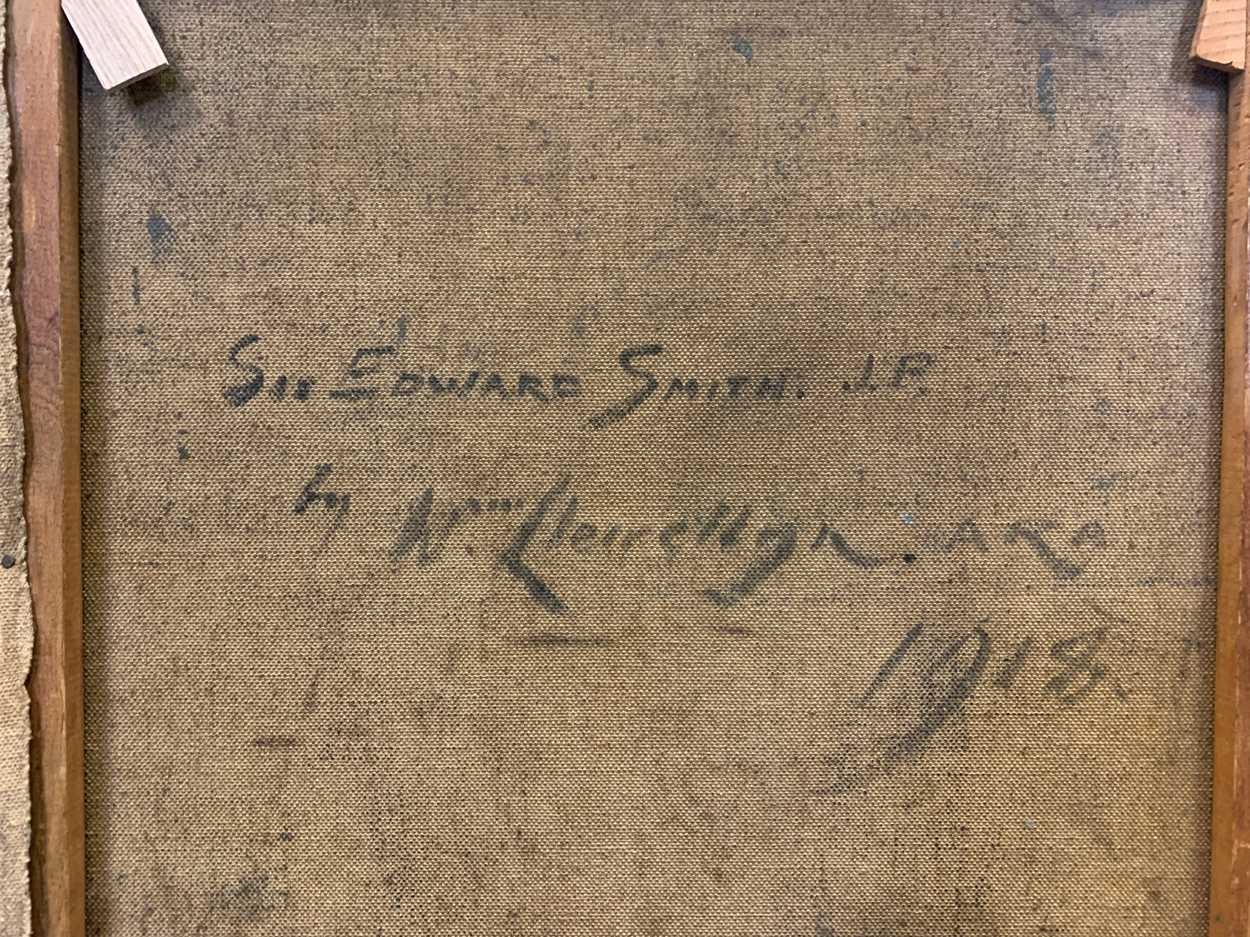 Sir EDWARD SMITH. J.P.
by Wm Llewellyn. ARA
1918.